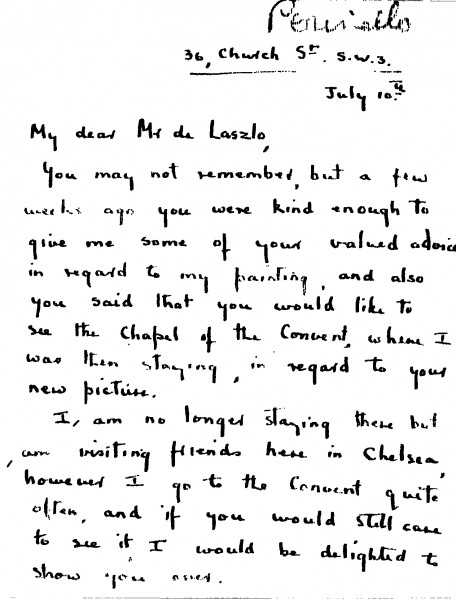 36, Church St. S.W.3.
July 10th
My dear Mr de Laszlo,
You may not remember, but a few
weeks ago you were kind enough to
give me some of your valued advice
in regard to my painting, and also
you said that you would like to
see the Chapel of the Convent, where I
was then staying, in regard to your
new picture.
I, am no longer staying there but
am visiting friends here in Chelsea,
however I go to the Convent quite
often, and if you would still care
to see it, I would be delighted to
show you over.